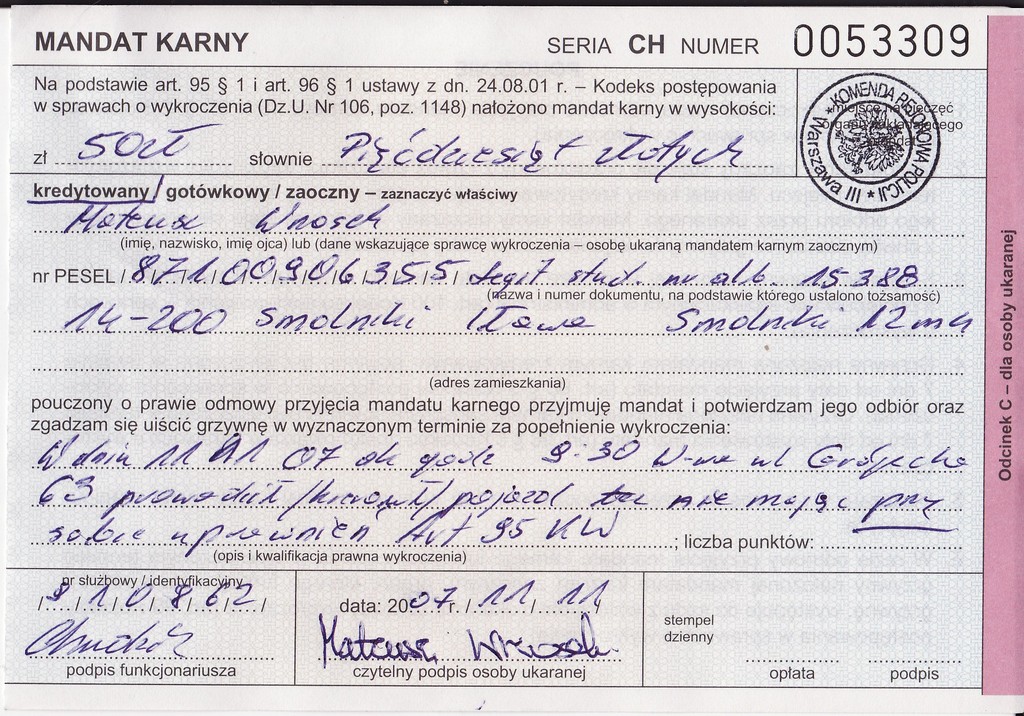 MANDAT KARNY SERIA CH NUMER 0053309
Na podstawie art. 95 § 1 i art. 96 § 1 ustawy z dn. 24.08.01 r. – Kodeks postępowania
w sprawach o wykroczenia (Dz.U. Nr 106, poz. 1148) nałożono mandat karny w wysokości:
miejsce na pieczęć
organu nakładającego
KOMENDA REJONOWA POLICJI * Warszawa III *
zł 50zł słownie Pięćdziesiąt złotych
kredytowany / gotówkowy / zaoczny – zaznaczyć właściwy
Mateusz Wrosek
(imię, nazwisko, imię ojca) lub (dane wskazujące sprawcę wykroczenia – osobę ukaraną mandatem karnym zaocznym)
nr PESEL / 8/7/1/0/0/9/0/6/3/5/5/ legit stud. nr alb. 15388
(nazwa i numer dokumentu, na podstawie którego ustalono tożsamość)
14-200 Smolniki Iława Smolniki 12
(adres zamieszkania)
pouczony o prawie odmowy przyjęcia mandatu karnego przyjmuję mandat i potwierdzam jego odbiór oraz
zgadzam się uiścić grzywnę w wyznaczonym terminie za popełnienie wykroczenia:
W dniu 11 11 07 ok godz 9:30 W-wa ul Grójecka
63 prowadził /kierował/ pojazd nie mając przy
sobie uprawnień Art 95 KW ; liczba punktów:
(opis i kwalifikacja prawna wykroczenia)
nr służbowy / identyfikacyjny
/9/1/0/8/6/2/ data: 2007 r. / 11 / 11 /
stempel
dzienny
Mateusz Wrosek
podpis funkcjonariusza czytelny podpis osoby ukaranej opłata podpis
Odcinek C – dla osoby ukaranej